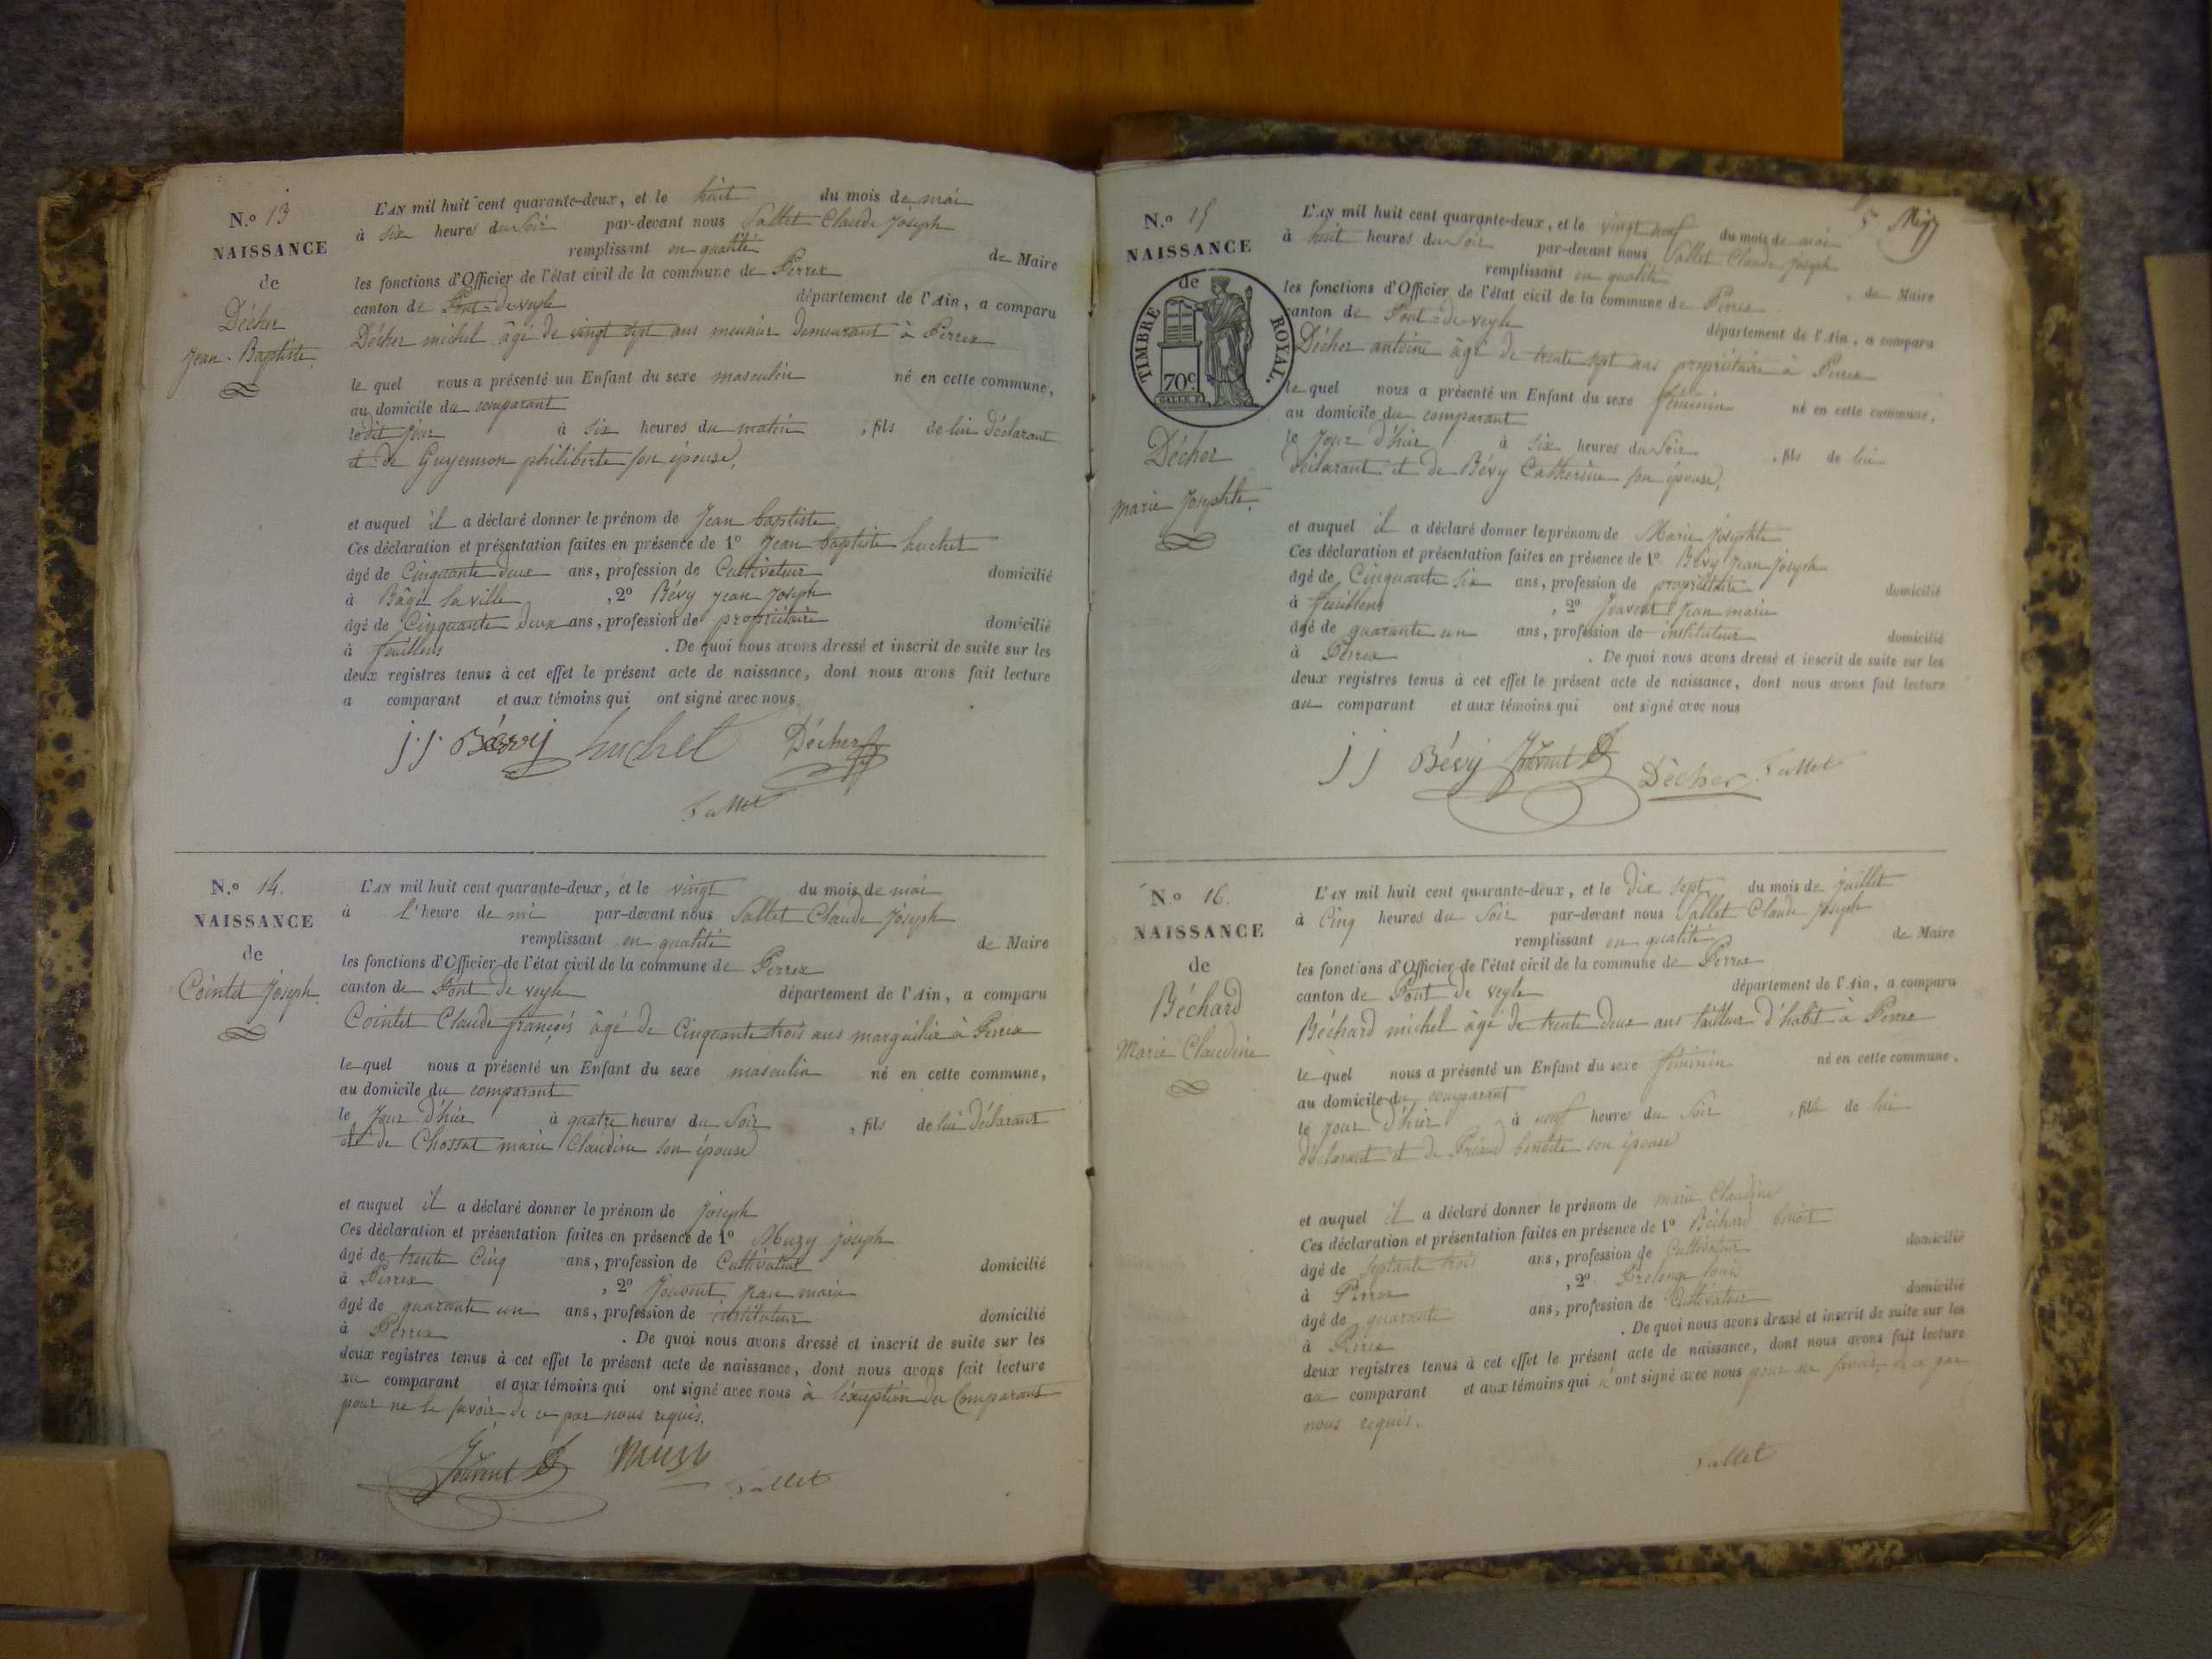 N.º 13
NAISSANCE
de
Décher
Jean-Baptiste.
L'AN mil huit cent quarante-deux, et le huit du mois de mai
à six heures du soir par-devant nous Sallet Claude Joseph
remplissant en qualité de Maire
les fonctions d'Officier de l'état civil de la commune de Perrex
canton de Pont-de-veyle département de l'Ain, a comparu
Décher michel âgé de vingt sept ans meunier demeurant à Perrex
le quel nous a présenté un Enfant du sexe masculin né en cette commune,
au domicile du comparant
ledit jour à six heures du matin, fils de lui déclarant
et de Guyennon philiberte son épouse,
et auquel il a déclaré donner le prénom de Jean baptiste
Ces déclaration et présentation faites en présence de 1º Jean baptiste huchet
âgé de Cinquante deux ans, profession de Cultivateur domicilié
à Bâgé la ville, 2º Bévy jean Joseph
âgé de Cinquante deux ans, profession de propriétaire domicilié
à feuillens. De quoi nous avons dressé et inscrit de suite sur les
deux registres tenus à cet effet le présent acte de naissance, dont nous avons fait lecture
a comparant et aux témoins qui ont signé avec nous
j j Bévy huchet Décher
Sallet
N.º 14.
NAISSANCE
de
Cointet Joseph.
L'AN mil huit cent quarante-deux, et le vingt du mois de mai
à l'heure de mi par-devant nous Sallet Claude Joseph
remplissant en qualité de Maire
les fonctions d'Officier de l'état civil de la commune de Perrex
canton de Pont de veyle département de l'Ain, a comparu
Cointet Claude françois âgé de Cinquante trois ans marguilier à Perrex
le quel nous a présenté un Enfant du sexe masculin né en cette commune,
au domicile du comparant
le jour d'hier à quatre heures du Soir, fils de lui déclarant
et de Chossat marie Claudine son épouse
et auquel il a déclaré donner le prénom de Joseph
Ces déclaration et présentation faites en présence de 1º Muzy joseph
âgé de trente Cinq ans, profession de Cultivateur domicilié
à Perrex, 2º Jouvent jean marie
âgé de quarante un ans, profession de instituteur domicilié
à Perrex. De quoi nous avons dressé et inscrit de suite sur les
deux registres tenus à cet effet le présent acte de naissance, dont nous avons fait lecture
au comparant et aux témoins qui ont signé avec nous à l'éxception du Comparant
pour ne le savoir de ce par nous requis.
Jouvent Muzy Sallet
5
N.º 15
NAISSANCE
de
TIMBRE ROYAL.
70c
Décher
marie Josephte.
L'AN mil huit cent quarante-deux, et le vingt neuf du mois de mai
à huit heures du Soir par-devant nous Sallet Claude Joseph
remplissant en qualité de Maire
les fonctions d'Officier de l'état civil de la commune de Perrex
canton de Pont-de-veyle département de l'Ain, a comparu
Décher antoine âgé de trente sept ans propriétaire à Perrex
le quel nous a présenté un Enfant du sexe féminin né en cette commune,
au domicile du comparant
le jour d'hier à six heures du Soir, fils de lui
déclarant et de Bévy Catherine son épouse,
et auquel il a déclaré donner le prénom de Marie Josephte
Ces déclaration et présentation faites en présence de 1º Bévy jean joseph
âgé de Cinquante six ans, profession de propriétaire domicilié
à feuillens, 2º Jouvent jean marie
âgé de quarante un ans, profession de instituteur domicilié
à Perrex. De quoi nous avons dressé et inscrit de suite sur les
deux registres tenus à cet effet le présent acte de naissance, dont nous avons fait lecture
au comparant et aux témoins qui ont signé avec nous
j j Bévy Jouvent Décher Sallet
Nº 16.
NAISSANCE
de
Béchard
Marie Claudine
L'AN mil huit cent quarante-deux, et le dix sept du mois de juillet
à Cinq heures du Soir par-devant nous Sallet Claude Joseph
remplissant en qualité de Maire
les fonctions d'Officier de l'état civil de la commune de Perrex
canton de Pont de veyle département de l'Ain, a comparu
Béchard michel âgé de trente deux ans tailleur d'habit à Perrex
le quel nous a présenté un Enfant du sexe féminin né en cette commune,
au domicile du comparant
le jour d'hier à neuf heures du Soir, fille de lui
déclarant et de benoite son épouse
et auquel il a déclaré donner le prénom de marie Claudine
Ces déclaration et présentation faites en présence de 1º Béchard benoit
âgé de septante trois ans, profession de Cultivateur domicilié
à Perrex, 2º louis
âgé de quarante ans, profession de Cultivateur domicilié
à Perrex. De quoi nous avons dressé et inscrit de suite sur les
deux registres tenus à cet effet le présent acte de naissance, dont nous avons fait lecture
au comparant et aux témoins qui n'ont signé avec nous pour ne savoir, de ce par
nous requis.
Sallet